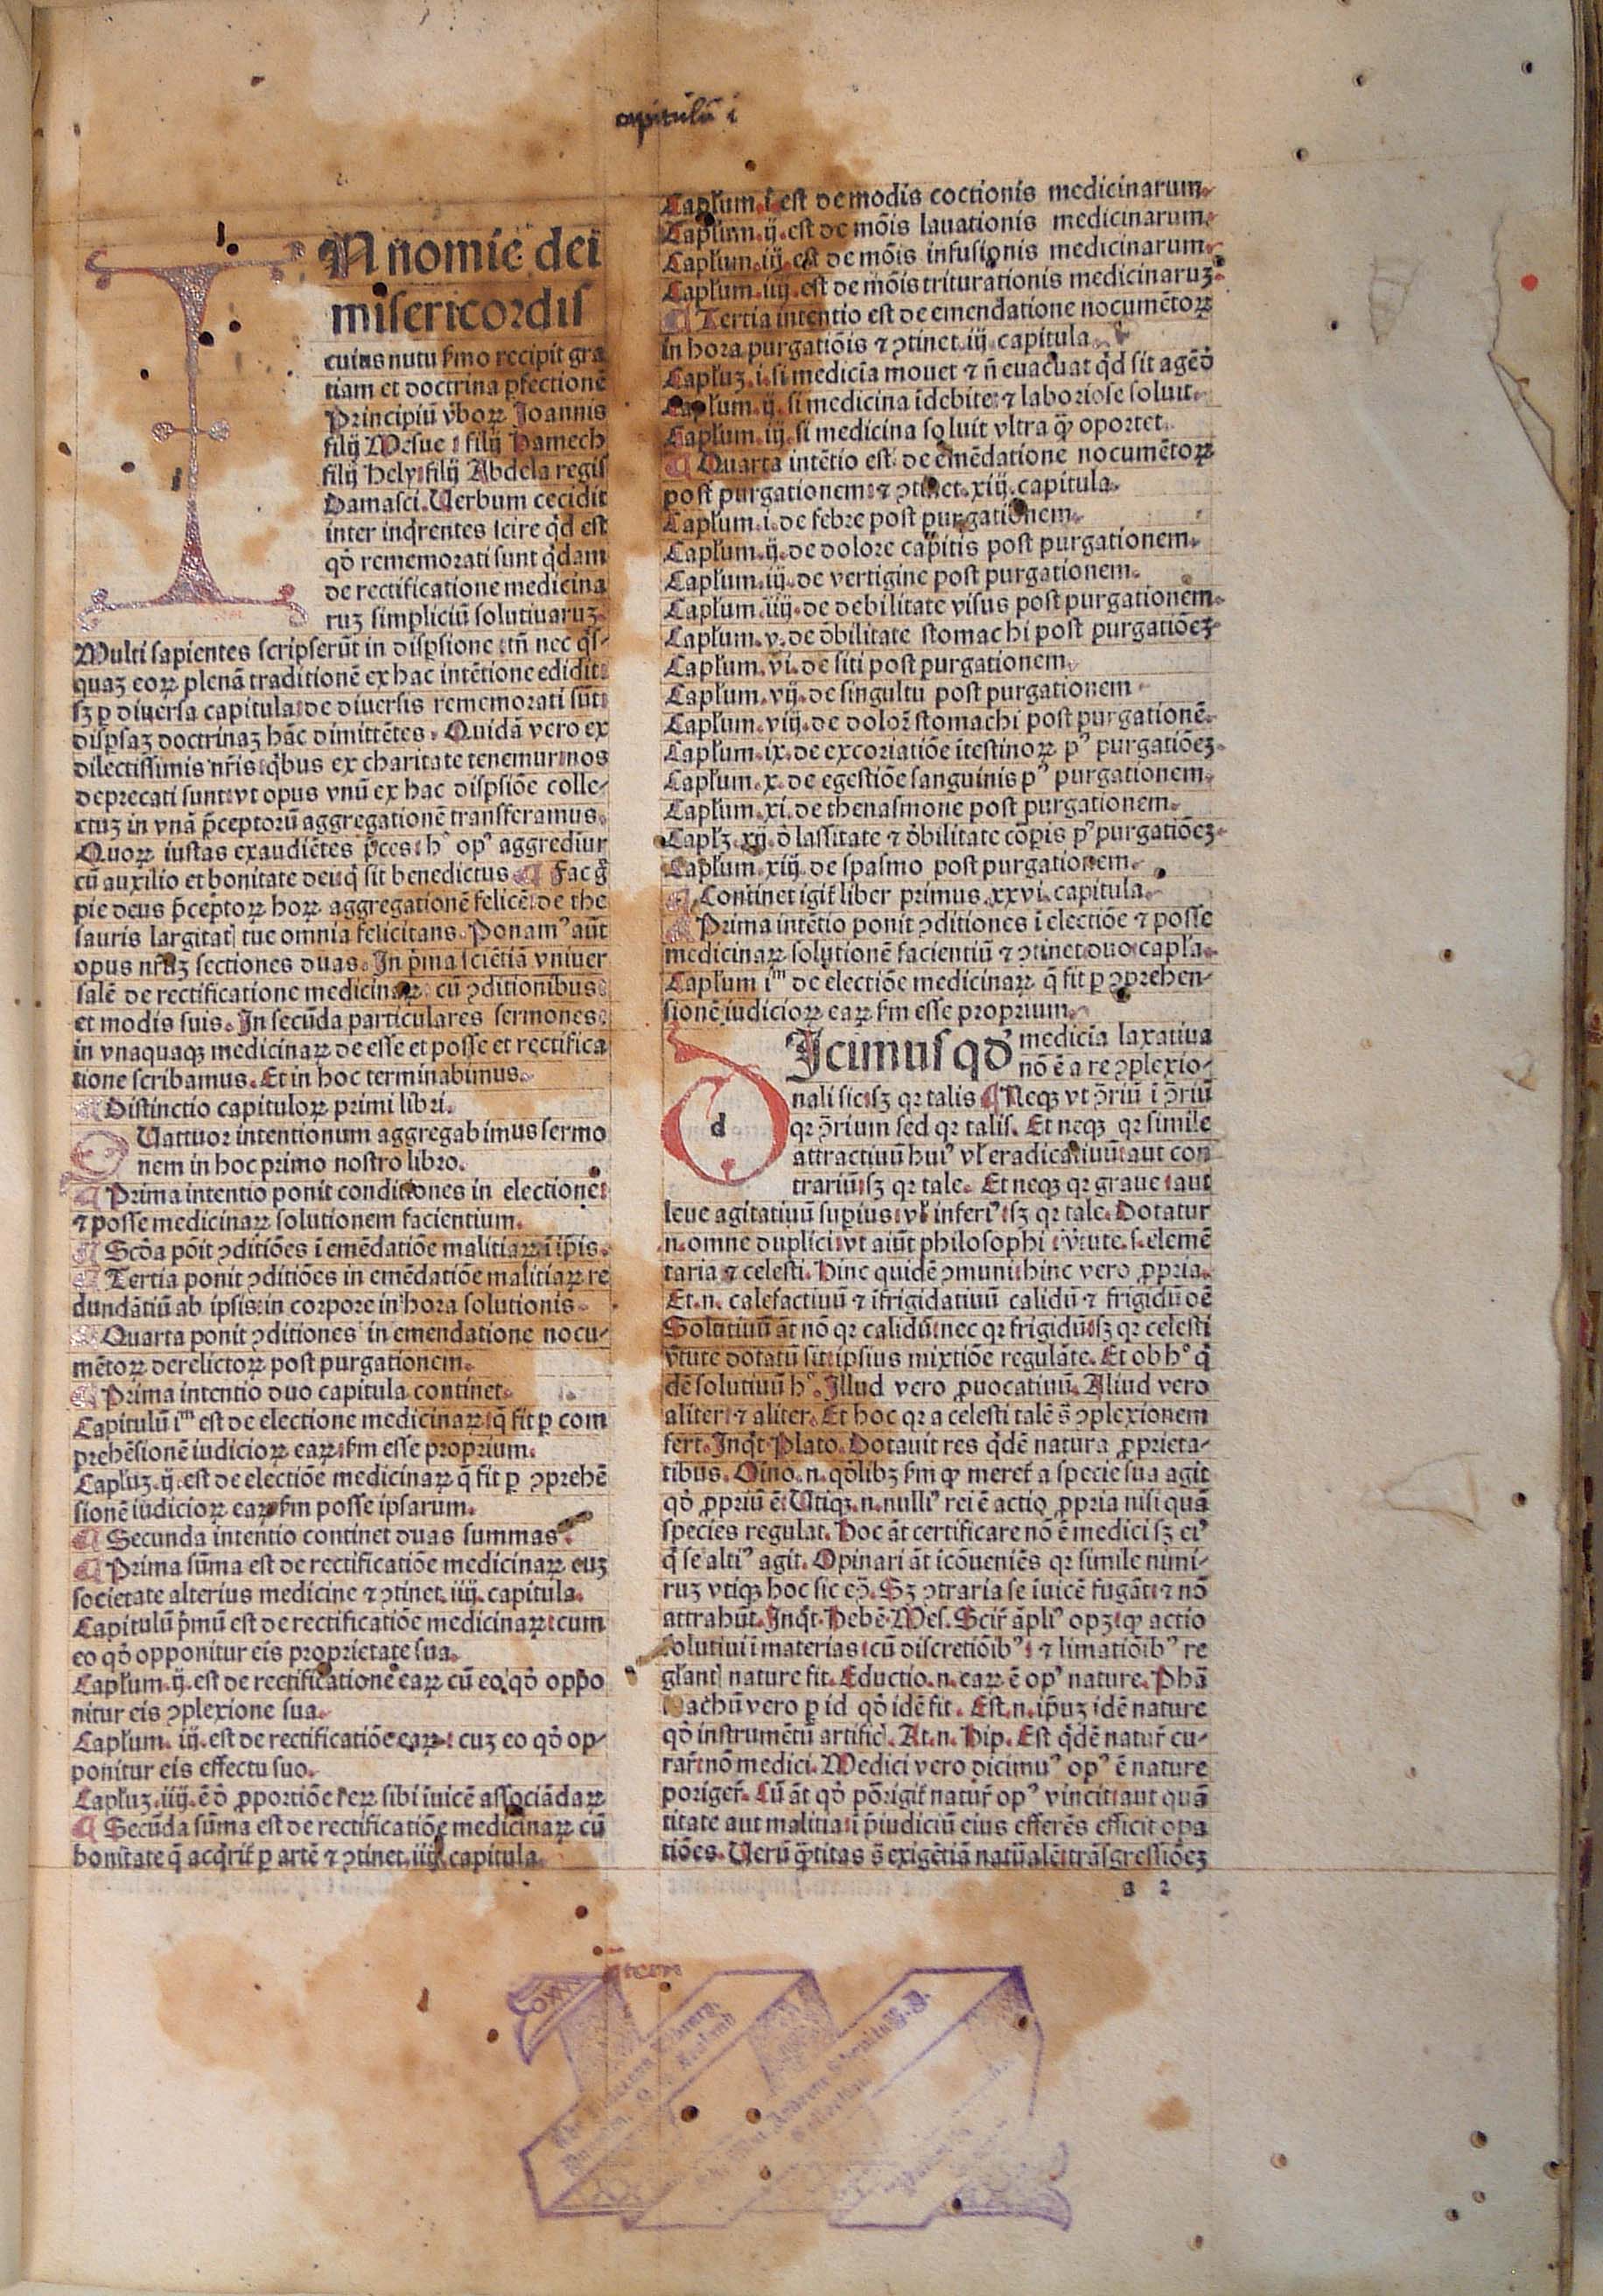 capitulū i
IN nomie dei
misericordis
cuius nutu ẜmo recipit gra
tiam et doctrina ꝑfectionē
Principiū v̓boꝝ Joannis
filij Mesue filij Hamech
filij Hely filij Abdela regis
Damasci. Uerbum cecidit
inter inq̇rentes scire qd̓ est
qd̓ rememorati sunt q̇dam
de rectificatione medicina
ruꝫ simpliciū solutiuaruꝫ.
Multi sapientes scripserūt in disꝑsione tn̄ nec q̇s-
quaꝫ eoꝝ plenā traditionē ex hac intētione edidit:
sꝫ ꝑ diuersa capitula: de diuersis rememorati sūt:
disꝑsaꝫ doctrinaꝫ hāc dimittētes. Quidā vero ex
dilectissimis nr̄is: q̇bus ex charitate tenemur: nos
deprecati sunt: vt opus vnū ex hac disꝑsiōe colle-
ctuꝫ in vnā p̄ceptorū aggregationē transferamus.
Quoꝝ iustas exaudiētes p̄ces: h̓ opꝰ aggrediur
cū auxilio et bonitate dei: q̇ sit benedictus ¶ Fac g̊
pie deus p̄ceptoꝝ hoꝝ aggregationē felicē: de the
sauris largitat tue omnia felicitans. Ponamꝰ aūt
opus nr̄uꝫ sectiones duas. In p̓ma sciētiā vniuer
salē de rectificatione medicinaꝝ: cū ꝯditionibus:
et modis suis. In secūda particulares sermones:
in vnaquaqꝫ medicinaꝝ de esse et posse et rectifica
tione scribamus. Et in hoc terminabimus.
¶ Distinctio capituloꝝ primi libri.
QUattuor intentionum aggregabimus sermo
nem in hoc primo nostro libro.
¶ Prima intentio ponit conditiones in electione:
⁊ posse medicinaꝝ solutionem facientium.
¶ Scd̓a pōit ꝯditiōes ī emēdatiōe malitiaꝝ ī ip̄is.
¶ Tertia ponit ꝯditiōes in emēdatiōe malitiaꝝ re
dundātiū ab ipsis: in corpore in hora solutionis.
¶ Quarta ponit ꝯditiones in emendatione nocu-
mētoꝝ derelictoꝝ post purgationem.
¶ Prima intentio duo capitula continet.
Capitulū iᵐ est de electione medicinaꝝ: q̄ fit ꝑ com
prehēsionē iudicioꝝ eaꝝ: ẜm esse proprium.
Capl̓uꝫ.ij. est de electiōe medicinaꝝ q̄ fit ꝑ ꝯprehē
sionē iudicioꝝ eaꝝ ẜm posse ipsarum.
¶ Secunda intentio continet duas summas.
¶ Prima sūma est de rectificatiōe medicinaꝝ cuꝫ
societate alterius medicine ⁊ ꝯtinet.iiij. capitula.
Capitulū p̓mū est de rectificatiōe medicinaꝝ: cum
eo qd̓ opponitur eis proprietate sua.
Capl̓um.ij. est de rectificatione eaꝝ cū eo qd̓ oppo
nitur eis ꝯplexione sua.
Capl̓um. iij. est de rectificatiōe eaꝝ: cuꝫ eo qd̓ op-
ponitur eis effectu suo.
Capl̓uꝫ.iiij. ē d̓ ꝓportiōe reꝝ sibi īuicē associādaꝝ
¶ Secūda sūma est de rectificatiōe medicinaꝝ cū
bonitate q̄ acq̇rit̓ ꝑ artē ⁊ ꝯtinet.iiij. capitula.
Capl̓um.i. est de modis coctionis medicinarum.
Capl̓um.ij. est de mōis lauationis medicinarum.
Capl̓um.iij. est de mōis infusionis medicinarum.
Capl̓um.iiij. est de mōis triturationis medicinaruꝫ.
¶ Tertia intentio est de emendatione nocumētoꝝ
in hora purgatiōis ⁊ ꝯtinet.iij. capitula.
Capl̓uꝫ.i. si medicīa mouet ⁊ n̄ euacuat qd̓ sit agēd̓
Capl̓um.ij. si medicina īdebite: ⁊ laboriose soluit.
Capl̓um.iij. si medicina soluit vltra ꝙ oportet.
¶ Quarta intētio est: de emēdatione nocumētoꝝ
post purgationem: ⁊ ꝯtinet.xiij. capitula.
Capl̓um.i. de febre post purgationem.
Capl̓um.ij. de dolore capitis post purgationem.
Capl̓um.iij. de vertigine post purgationem.
Capl̓um.iiij. de debilitate visus post purgationem.
Capl̓um.v. de d̓bilitate stomachi post purgatiōeꝫ.
Capl̓um.vi. de siti post purgationem.
Capl̓um.vij. de singultu post purgationem.
Capl̓um.viij. de dolor̄ stomachi post purgationē.
Capl̓um.ix. de excoriatiōe ītestinoꝝ pꝰ purgatiōeꝫ.
Capl̓um.x. de egestiōe sanguinis pꝰ purgationem.
Capl̓um.xi. de thenasmone post purgationem.
Capl̓ꝫ.xij. d̓ lassitate ⁊ d̓bilitate cōpis pꝰ purgatiōeꝫ.
Capl̓um.xiij. de spasmo post purgationem.
¶ Continet igit̓ liber primus.xxvi. capitula.
¶ Prima intētio ponit ꝯditiones ī electiōe ⁊ posse
medicinaꝝ solutionē facientiū ⁊ ꝯtinet duo capl̓a.
Capl̓um iᵐ de electiōe medicinaꝝ q̄ fit ꝑ ꝯprehen-
sionē iudicioꝝ eaꝝ ẜm esse proprium.
d
Icimus qd̓ medicīa laxatiua
nō ē a re ꝯplexio-
nali sic: sꝫ qr talis ¶ Neqꝫ vt ꝯ̄riū ī ꝯ̄riū
qr ꝯ̄rium sed qr talis. Et neqꝫ qr simile
attractiuū huiꝰ vl̓ eradicatiuū: aut con
trariū: sꝫ qr tale. Et neqꝫ qr graue: aut
leue agitatiuū suꝑius: vl̓ inferiꝰ: sꝫ qr tale. Dotatur
.n. omne duplici: vt aiūt philosophi: v̓tute.s. elemē
taria ⁊ celesti. Hinc quidē ꝯmuni: hinc vero ꝓpria.
Et.n. calefactiuū ⁊ īfrigidatiuū calidū ⁊ frigidū oē
Solutiuū āt nō qr calidū: nec qr frigidū: sꝫ qr celesti
v̓tute dotatū sit: ipsius mixtiōe regulāte. Et ob hᵒ q̇
dē solutiuū hᵒ. Illud vero ꝓuocatiuū. Aliud vero
aliter: ⁊ aliter. Et hoc qr a celesti talē ꝯplexionem
fert. Inq̇t Plato. Dotauit res q̇dē natura ꝓprieta-
tibus. Oīno.n. qd̓libꝫ ẜm ꝙ meret̓ a specie sua agit
qd̓ ꝓpriū ē: Utiqꝫ.n. nulliꝰ rei ē actio ꝓpria nisi quā
species regulat. Hoc āt certificare nō ē medici sꝫ eiꝰ
q̇ se altiꝰ agit. Opinari āt īcōueniēs qr simile nimi-
ruꝫ vtiqꝫ hoc sic. Sꝫ ꝯtraria se īuicē fugāt: ⁊ nō
attrahūt. Inq̇t Hebē Mes. Scir̄ āpliꝰ opꝫ: ꝙ actio
solutiui ī materias: cū discretiōibꝰ: ⁊ limatiōibꝰ re
glant nature fit. Eductio.n. eaꝝ ē opꝰ nature. Phā
achū vero ꝑ id qd̓ idē fit. Est.n. ip̄uꝫ idē nature
qd̓ instrumētū artific. At.n. Hip. Est q̇dē natur̄ cu-
rar̄: nō medici. Medici vero dicimuꝰ opꝰ ē nature
poriger̄. Cū āt qd̓ pōrigit̓ natur̄ opꝰ vincit: aut quā
titate aut malitia: ī p̄iudiciū eius efferēs efficit oꝑa
tiōes. Uerū q̄titas exigētiā naturalē: trāsgressiōeꝫ
a 2